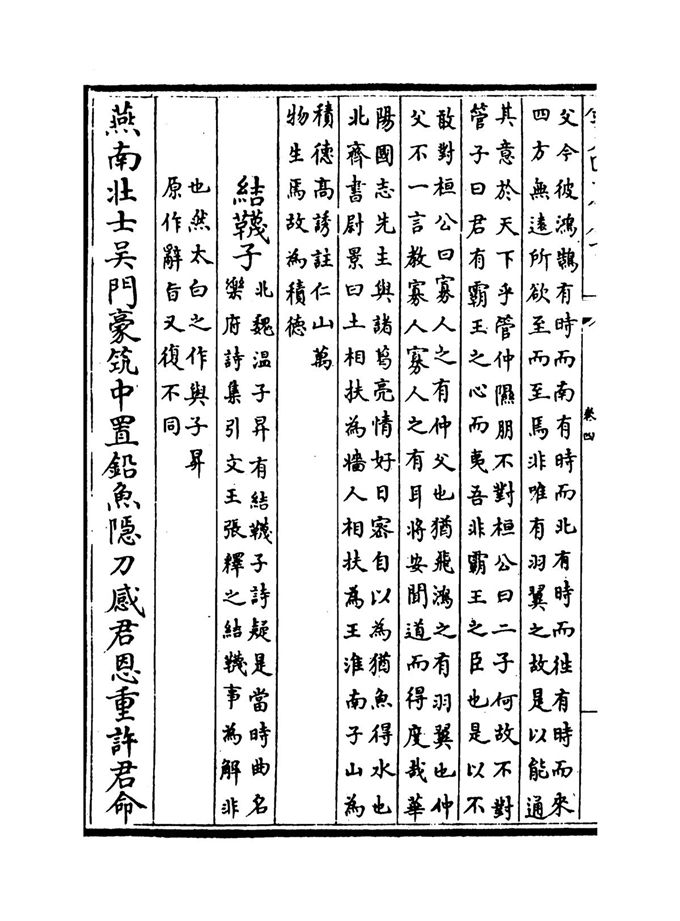 卷四
父今彼鴻鵠有時而南有時而北有時而徃有時而來
四方無遠所欲至而至焉非唯有羽翼之故是以能通
其意於天下乎管仲隰朋不對桓公曰二子何故不對
管子曰君有霸王之心而夷吾非霸王之臣也是以不
敢對桓公曰寡人之有仲父也猶飛鴻之有羽翼也仲
父不一言教寡人寡人之有耳將安聞道而得度哉華
陽國志先主與諸葛亮情好日密自以為猶魚得水也
北齊書尉景曰土相扶為牆人相扶為王淮南子山為
積德高誘註仁山萬
物生焉故為積德
結韈子
北魏温子昇有結韈子詩疑是當時曲名
樂府詩集引文王張釋之結韈事為解非
也然太白之作與子昇
原作辭旨又復不同
燕南壯士吴門豪筑中置鉛魚隱刀感君恩重許君命